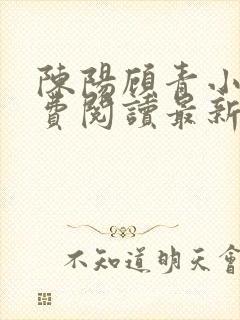 陳陽顧青小
費閱讀最新
不知道明天會